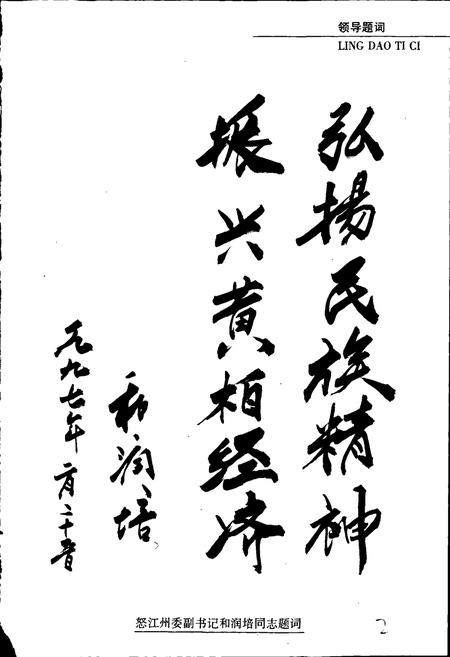 领导题词
LING DAO TI CI
弘揚民族精神
振兴黄柏经济
和润培
一九九七年二月二十五日
怒江州委副书记和润培同志题词
2